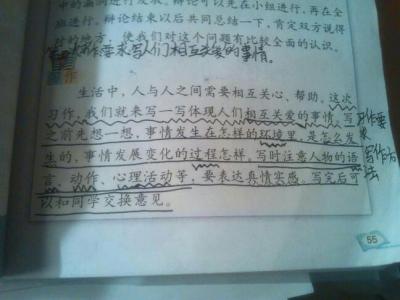 中的漏洞进行发棠。辩论可以先在小组进行，再在全
班进行。辩论结束以后共同总结一下，肯定双方说得
对的地方，使我们对这个问题有比较全面的认识。
作要求写人们相互关爱的事情。
习作
生活中，人与人之间需要相互关心、帮助。这次
习作，我们就来写一写体现人们相互关爱的事情。写
之前先想一想，事情发生在怎样的环境里，是怎么发
生的，事情发展变化的过程怎样。写时注意人物的语
言、动作、心理活动等，要表达真情实感。写完后可
以和同学交换意见。
习作要
求
写作方
法
55